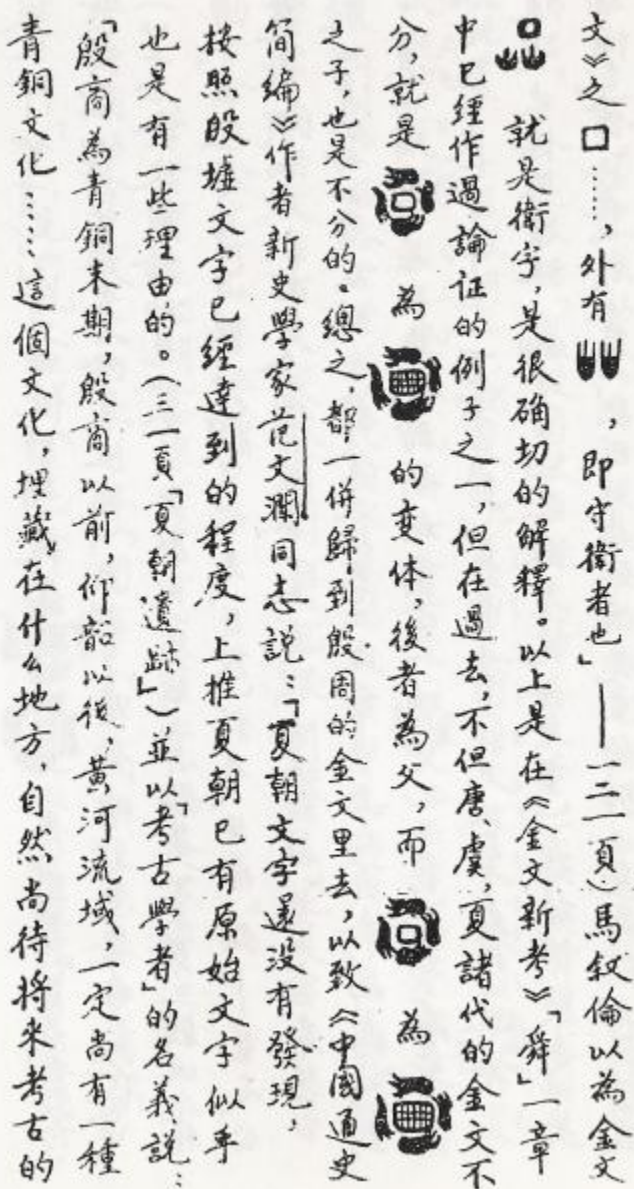 文》之口……，外有，即守衛者也」——一二一頁）馬叙倫以為金文
就是衛字，是很确切的解釋。以上是在《金文新考》「舜」一章
中已經作過論证的例子之一，但在過去，不但唐、虞、夏諸代的金文不
分，就是為的变体，後者為父，而為
之子，也是不分的。總之，都一併歸到殷周的金文里去，以致《中國通史
简编》作者新史學家范文瀾同志説：「夏朝文字還没有發現，
按照殷墟文字已經達到的程度，上推夏朝已有原始文字似乎
也是有一些理由的。（三一頁「夏朝遺跡」）並以「考古學者」的名義説：
「殷商為青銅末期，殷商以前，仰韶以後，黄河流域，一定尚有一種
青銅文化……這個文化，埋藏在什么地方，自然尚待将来考古的